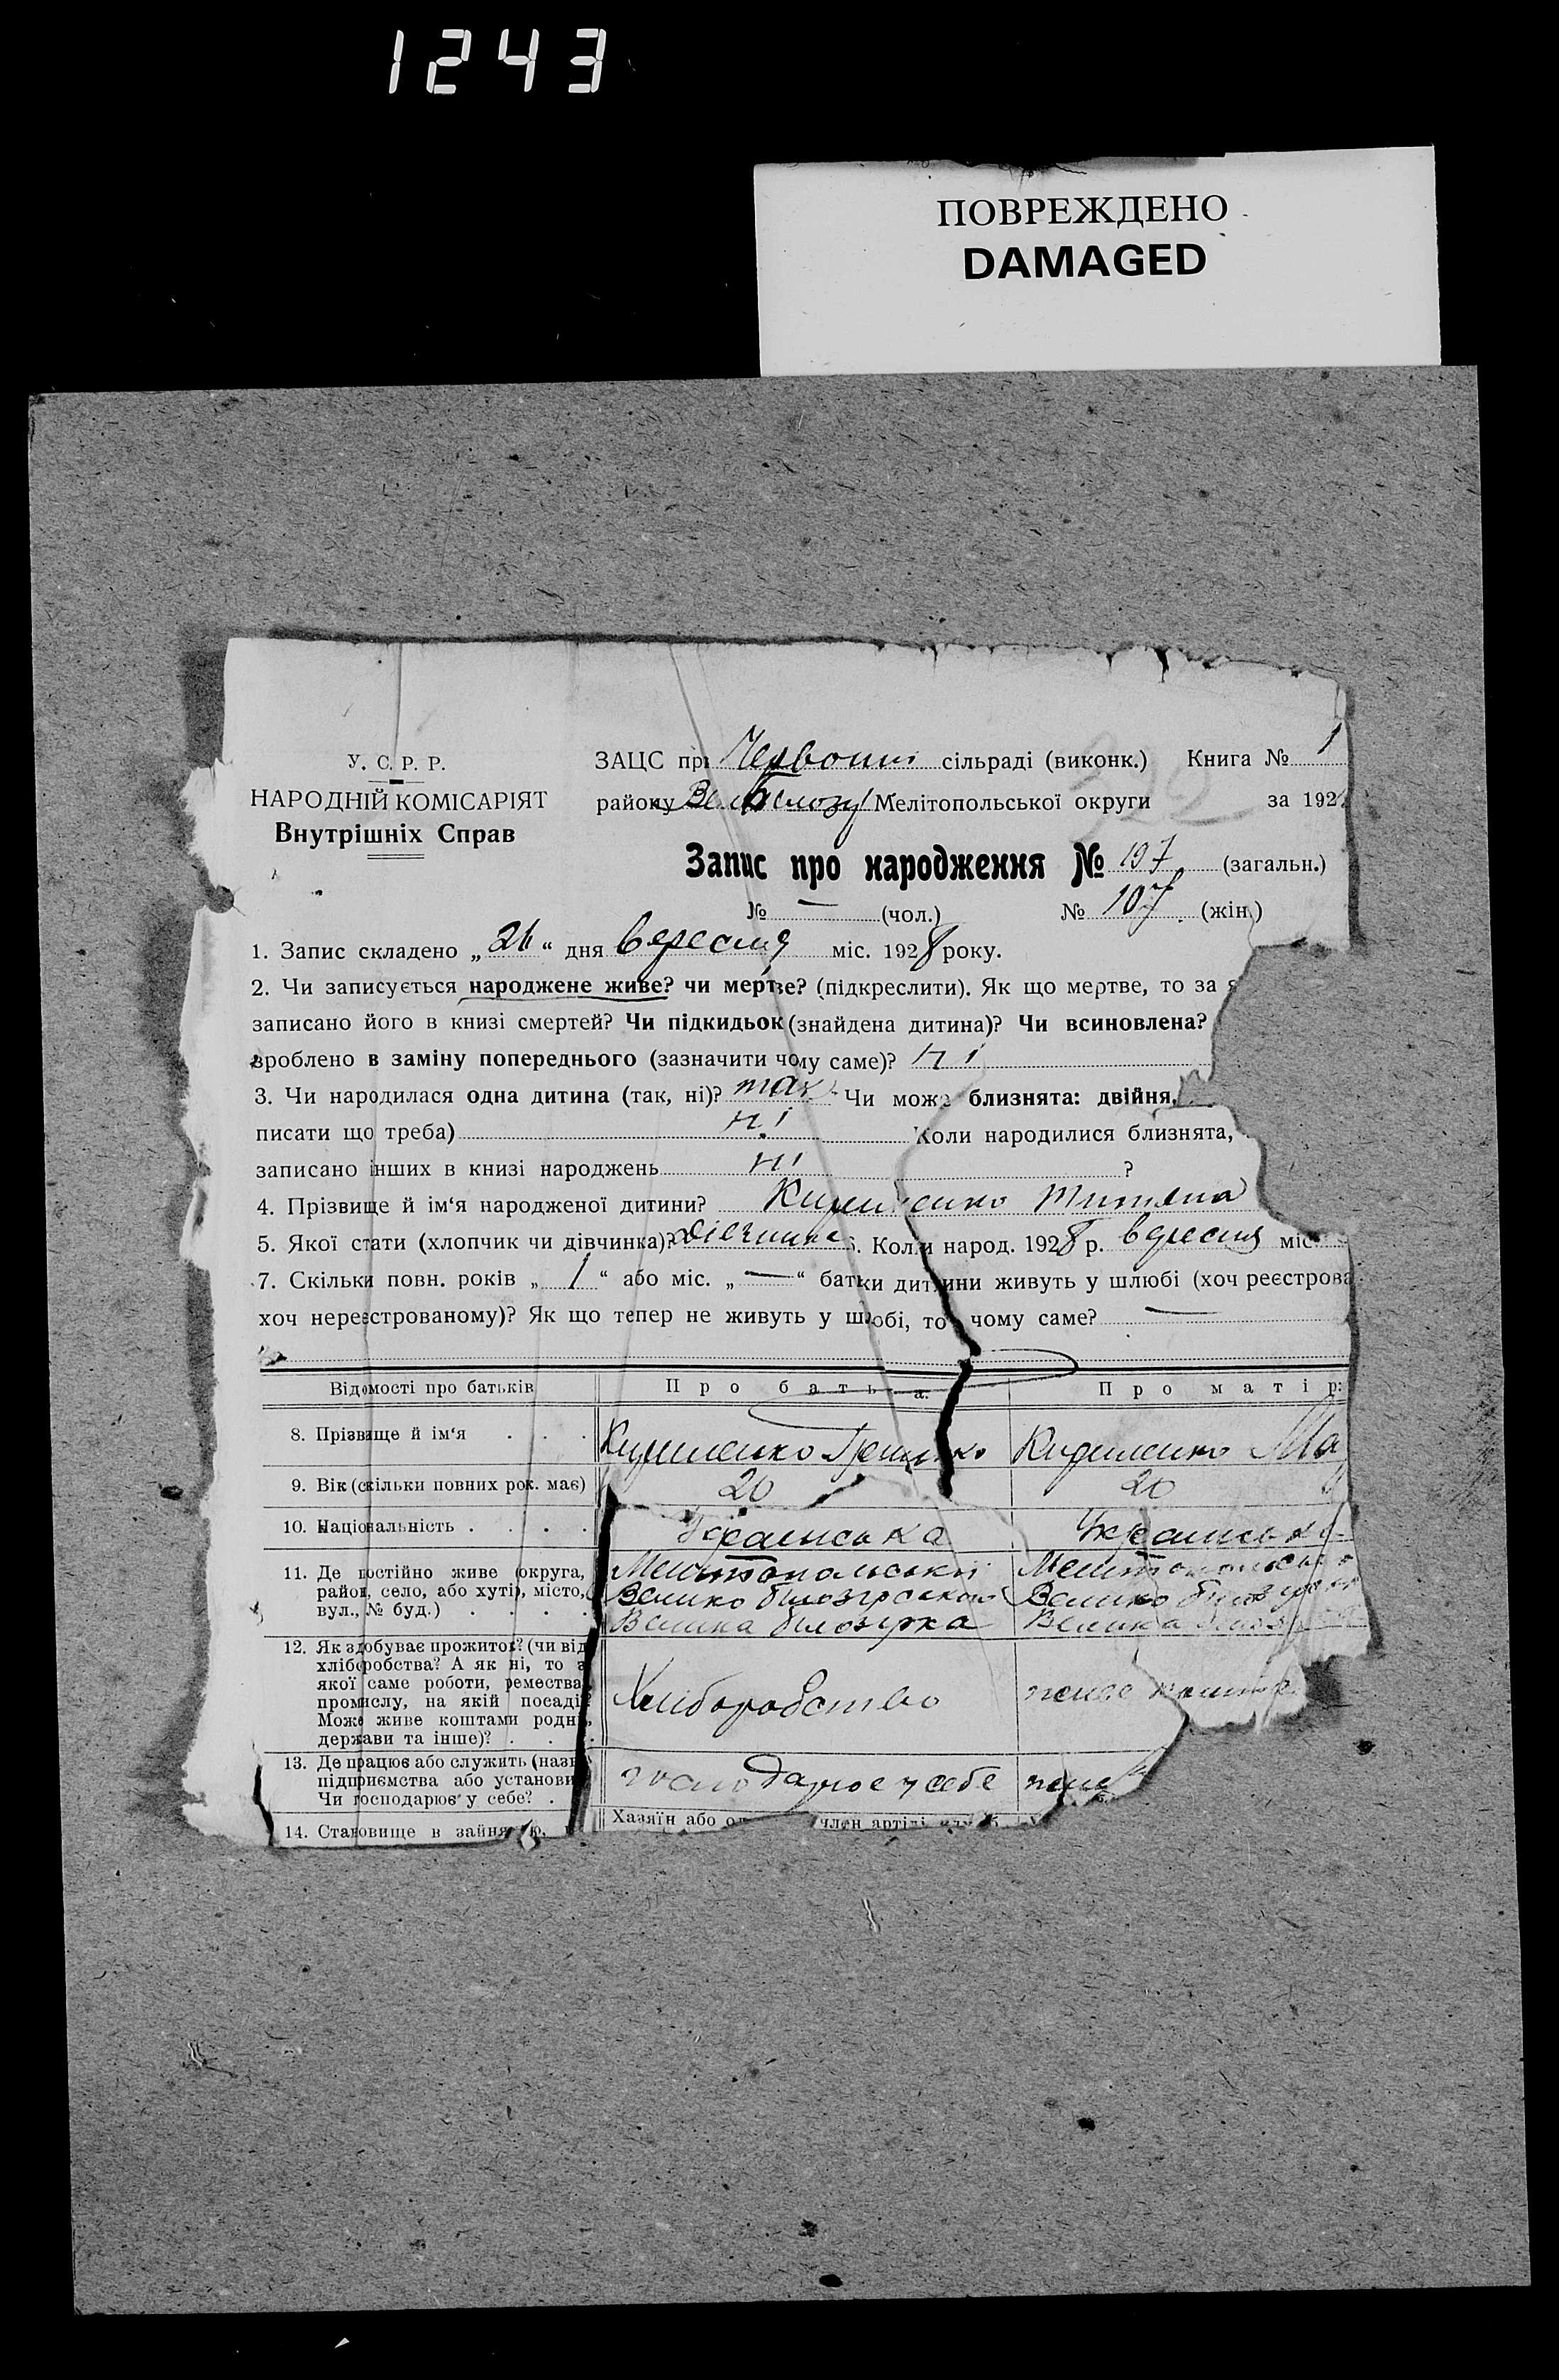 1243
ПОВРЕЖДЕНО
DAMAGED
У. С. Р. Р.
НАРОДНІЙ КОМІСАРІЯТ
Внутрішніх Справ
ЗАЦС при Червоній сільраді (виконк.) Книга № 1
району Мелітопольської округи за 192
Запис про народження № 197 (загальн.)
№ — (чол.) № 107 (жін.)
1. Запис складено „26“ дня вересня міс. 1928 року.
2. Чи записується народжене живе? чи мертве? (підкреслити). Як що мертве, то за
записано його в книзі смертей? Чи підкидьок (знайдена дитина)? Чи всиновлена?
зроблено в заміну попереднього (зазначити чому саме)? ні
3. Чи народилася одна дитина (так, ні)? так Чи може близнята: двійня,
писати що треба) ні Коли народилися близнята,
записано інших в книзі народжень ні ?
4. Прізвище й ім‘я народженої дитини?
5. Якої стати (хлопчик чи дівчинка)? дівчинка 6. Коли народ. 1928 р. вересня міс
7. Скільки повн. років „1“ або міс. „—“ батьки дитини живуть у шлюбі (хоч реєстрова
хоч нереєстрованому)? Як що тепер не живуть у шлюбі, то чому саме? —
Відомості про батьків Про батька: Про матір:
8. Прізвище й ім‘я . . .
9. Вік (скільки повних рок. має) 20 20
10. Національність . . . . Українська Українська
11. Де постійно живе (округа,
район, село, або хутір, місто,
вул., № буд.) . . . .
Мелітопольській
Велико білозірський Велико
Велика білозірка Велика
12. Як здобуває прожиток? (чи від
хліборобства? А як ні, то з
якої саме роботи, ремества,
промислу, на якій посаді?
Може живе коштами родні,
держави та інше)? . . .
Хліборобство
13. Де працює або служить (назв
підприємства або установи
Чи господарює у себе? .
господарює у себе
14. Становище в Хазяїн або член артілі